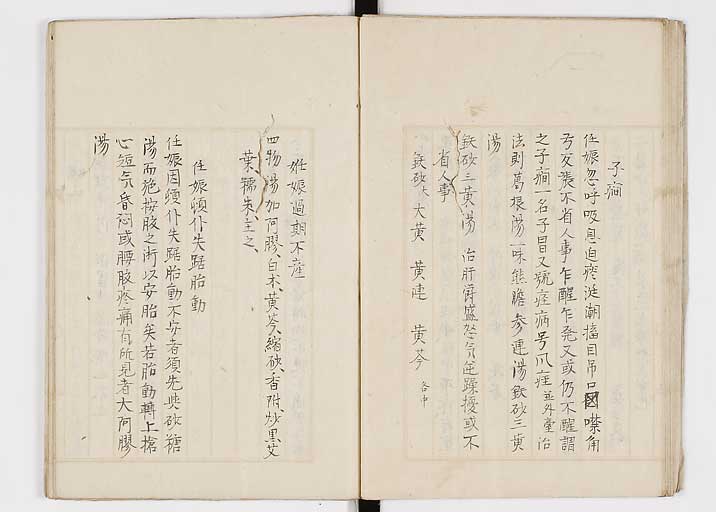 子癇
妊娠忽呼吸息迫痰涎潮搐目吊口噤角
弓反張不省人事乍醒乍発又或仍不醒謂
之子癇一名子冒又號痙病号爪痙並外臺治
法則葛根湯一味熊膽参連湯鉄砂三黄
湯
鉄砂三黄湯 治肝欝盛怒気逆躁擾或不
省人事
鉄砂大 大黄 黄連 黄芩 各中
妊娠過期不産
四物湯加阿膠、白木、黄芩、縮砂、香附、炒黒艾
葉、糯朱、主之、
妊娠頓仆失踞胎動
妊娠因頓仆失踞胎動不安者須先与砂糖
湯而施按腹之術以安胎矣若胎動轉上搶
心短気昏悶或腰腹疼痛有所見者大阿膠
湯